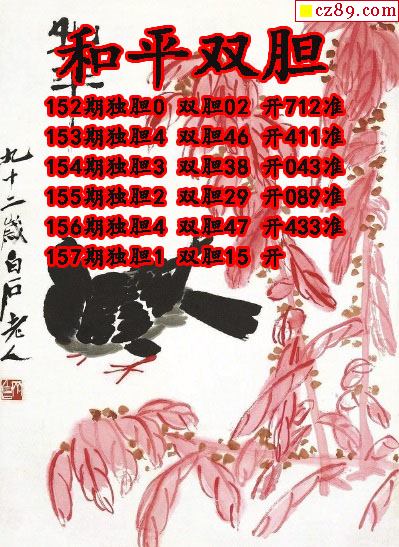 cz89.com
和平双胆
152期独胆0 双胆02 开712准
153期独胆4 双胆46 开411准
154期独胆3 双胆38 开043准
155期独胆2 双胆29 开089准
156期独胆4 双胆47 开433准
157期独胆1 双胆15 开
九十二岁白石老人